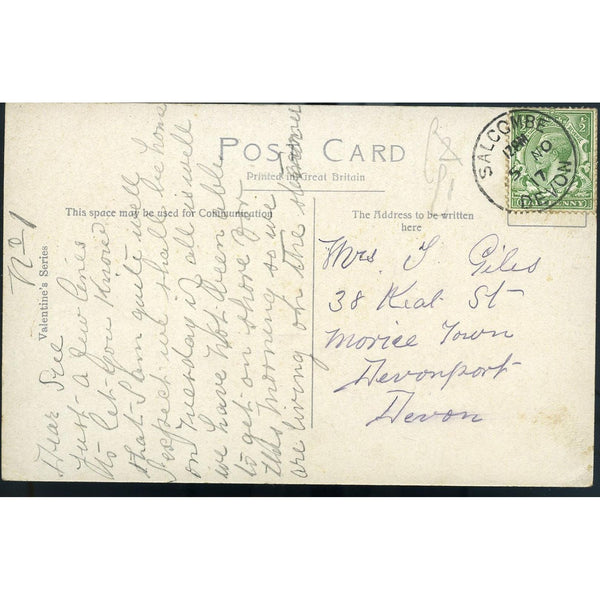 POST CARD
Printed in Great Britain
This space may be used for Communication
The Address to be written
here
Valentine's Series
No 1
Dear
Just a few lines
to let you know
that I am quite well
I expect we shall be home
on Tuesday if all is well
we have not been able
to get on shore for
this morning so we
are living on the
Mrs J. Giles
38 Keat St
Morice Town
Devonport
Devon
SALCOMBE
12AM
5 NO
17
DEVON